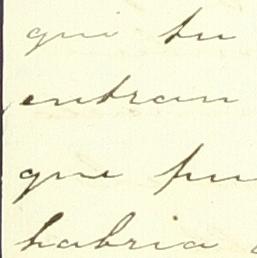 qui tu
entran
que pu
habria